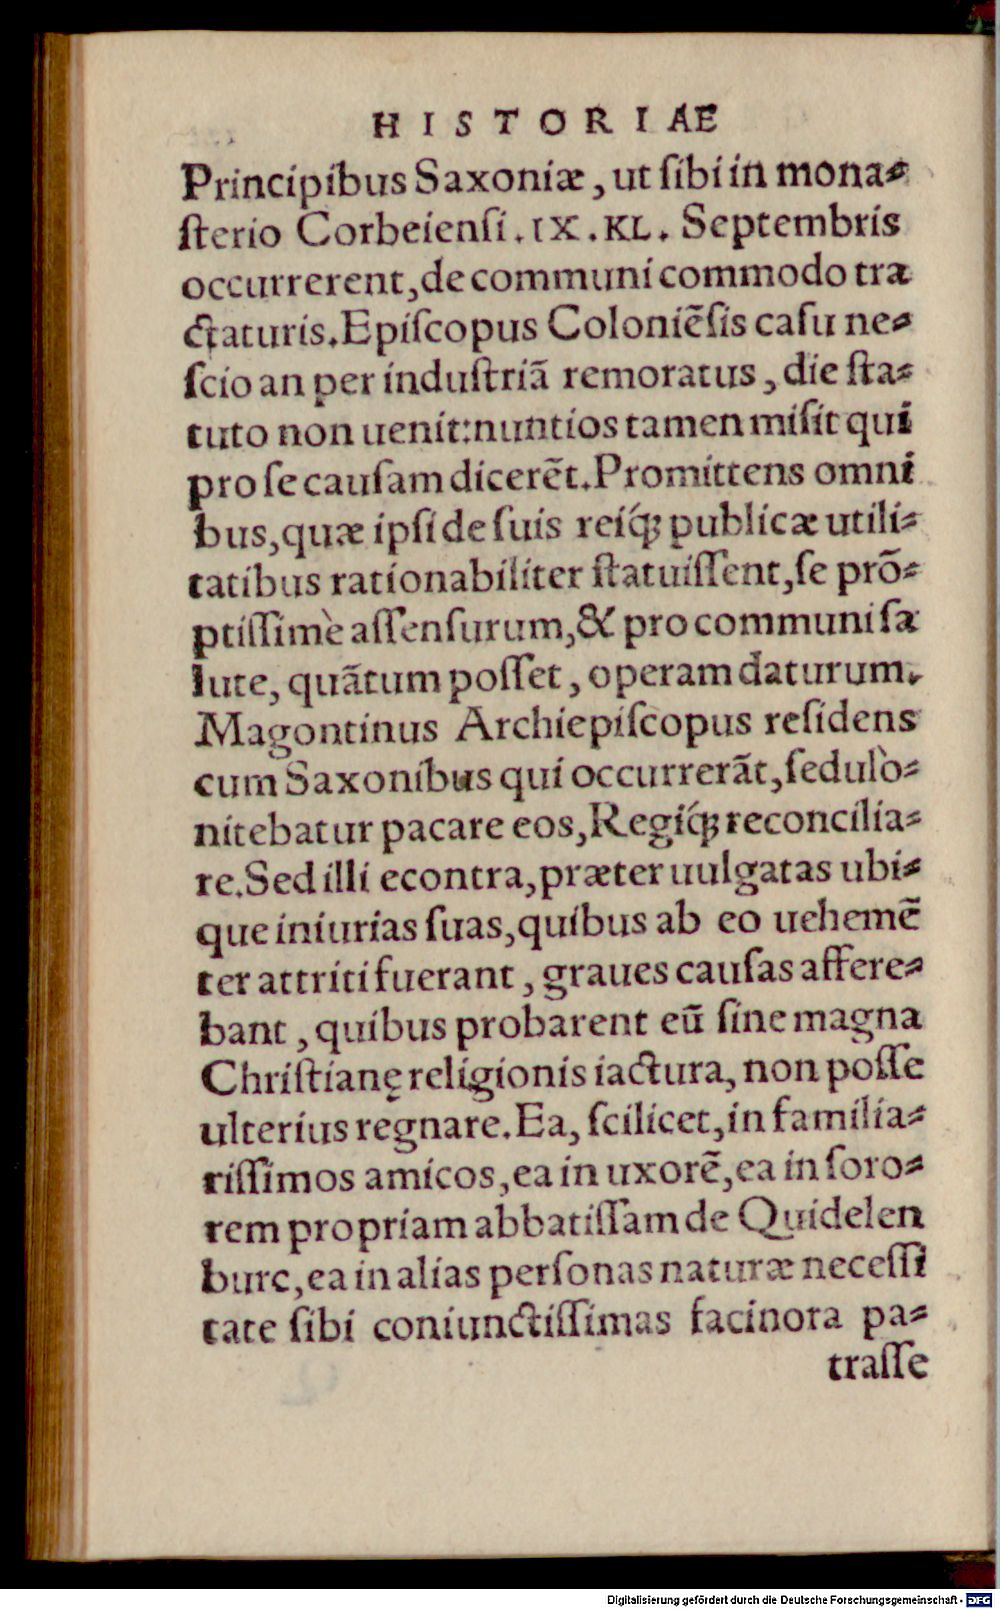 HISTORIAE
Principibus Saxoniæ, ut ſibi in mona⸗
ſterio Corbeienſi. IX. KL. Septembris
occurrerent, de communi commodo tra
ctaturis. Epiſcopus Coloniẽſis caſu ne⸗
ſcio an per induſtriã remoratus, die ſta⸗
tuto non uenit: nuntios tamen miſit qui
pro ſe cauſam dicerẽt. Promittens omni
bus, quæ ipſi de ſuis reiq́; publicæ utili⸗
tatibus rationabiliter ſtatuiſſent, ſe prõ⸗
ptiſſimè aſſenſurum, & pro communi ſa
lute, quãtum poſſet, operam daturum.
Magontinus Archiepiſcopus reſidens
cum Saxonibus qui occurrerãt, ſedulò⸗
nitebatur pacare eos, Regiq́; reconcilia⸗
re. Sed illi econtra, præter uulgatas ubi⸗
que iniurias ſuas, quibus ab eo uehemẽ
ter attriti fuerant, graues cauſas affere⸗
bant, quibus probarent eũ ſine magna
Chriſtianę religionis iactura, non poſſe
ulterius regnare. Ea, ſcilicet, in familia⸗
riſſimos amicos, ea in uxorẽ, ea in ſoro⸗
rem propriam abbatiſſam de Quidelen
burc, ea in alias perſonas naturæ neceſſi
tate ſibi coniunctiſſimas facinora pa⸗
traſſe
Digitalisierung gefördert durch die Deutsche Forschungsgemeinschaft - DFG